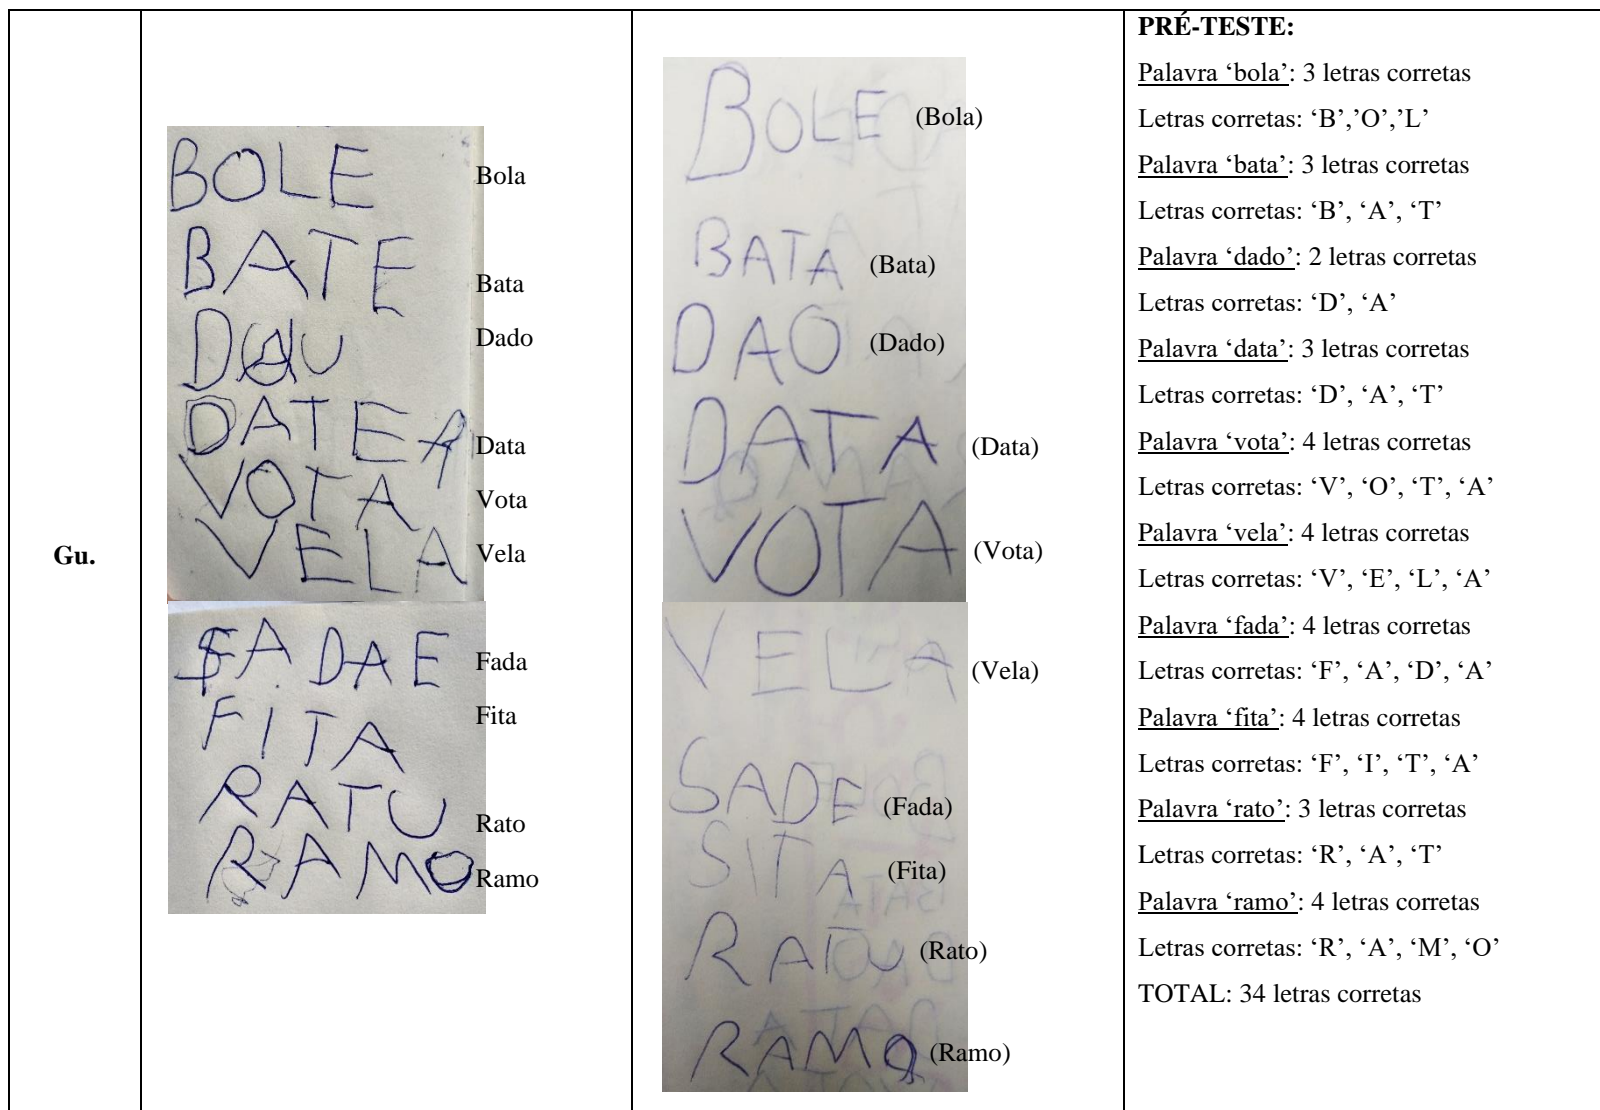 Gu.
BOLE Bola
BATE Bata
DAU Dado
DATEA Data
VOTA Vota
VELA Vela
FADAE Fada
FITA Fita
RATU Rato
RAMO Ramo
BOLE (Bola)
BATA (Bata)
DAO (Dado)
DATA (Data)
VOTA (Vota)
VELA (Vela)
SADE (Fada)
SITA (Fita)
RATU (Rato)
RAMO (Ramo)
PRÉ-TESTE:
Palavra ‘bola’: 3 letras corretas
Letras corretas: ‘B’,’O’,’L’
Palavra ‘bata’: 3 letras corretas
Letras corretas: ‘B’, ‘A’, ‘T’
Palavra ‘dado’: 2 letras corretas
Letras corretas: ‘D’, ‘A’
Palavra ‘data’: 3 letras corretas
Letras corretas: ‘D’, ‘A’, ‘T’
Palavra ‘vota’: 4 letras corretas
Letras corretas: ‘V’, ‘O’, ‘T’, ‘A’
Palavra ‘vela’: 4 letras corretas
Letras corretas: ‘V’, ‘E’, ‘L’, ‘A’
Palavra ‘fada’: 4 letras corretas
Letras corretas: ‘F’, ‘A’, ‘D’, ‘A’
Palavra ‘fita’: 4 letras corretas
Letras corretas: ‘F’, ‘I’, ‘T’, ‘A’
Palavra ‘rato’: 3 letras corretas
Letras corretas: ‘R’, ‘A’, ‘T’
Palavra ‘ramo’: 4 letras corretas
Letras corretas: ‘R’, ‘A’, ‘M’, ‘O’
TOTAL: 34 letras corretas